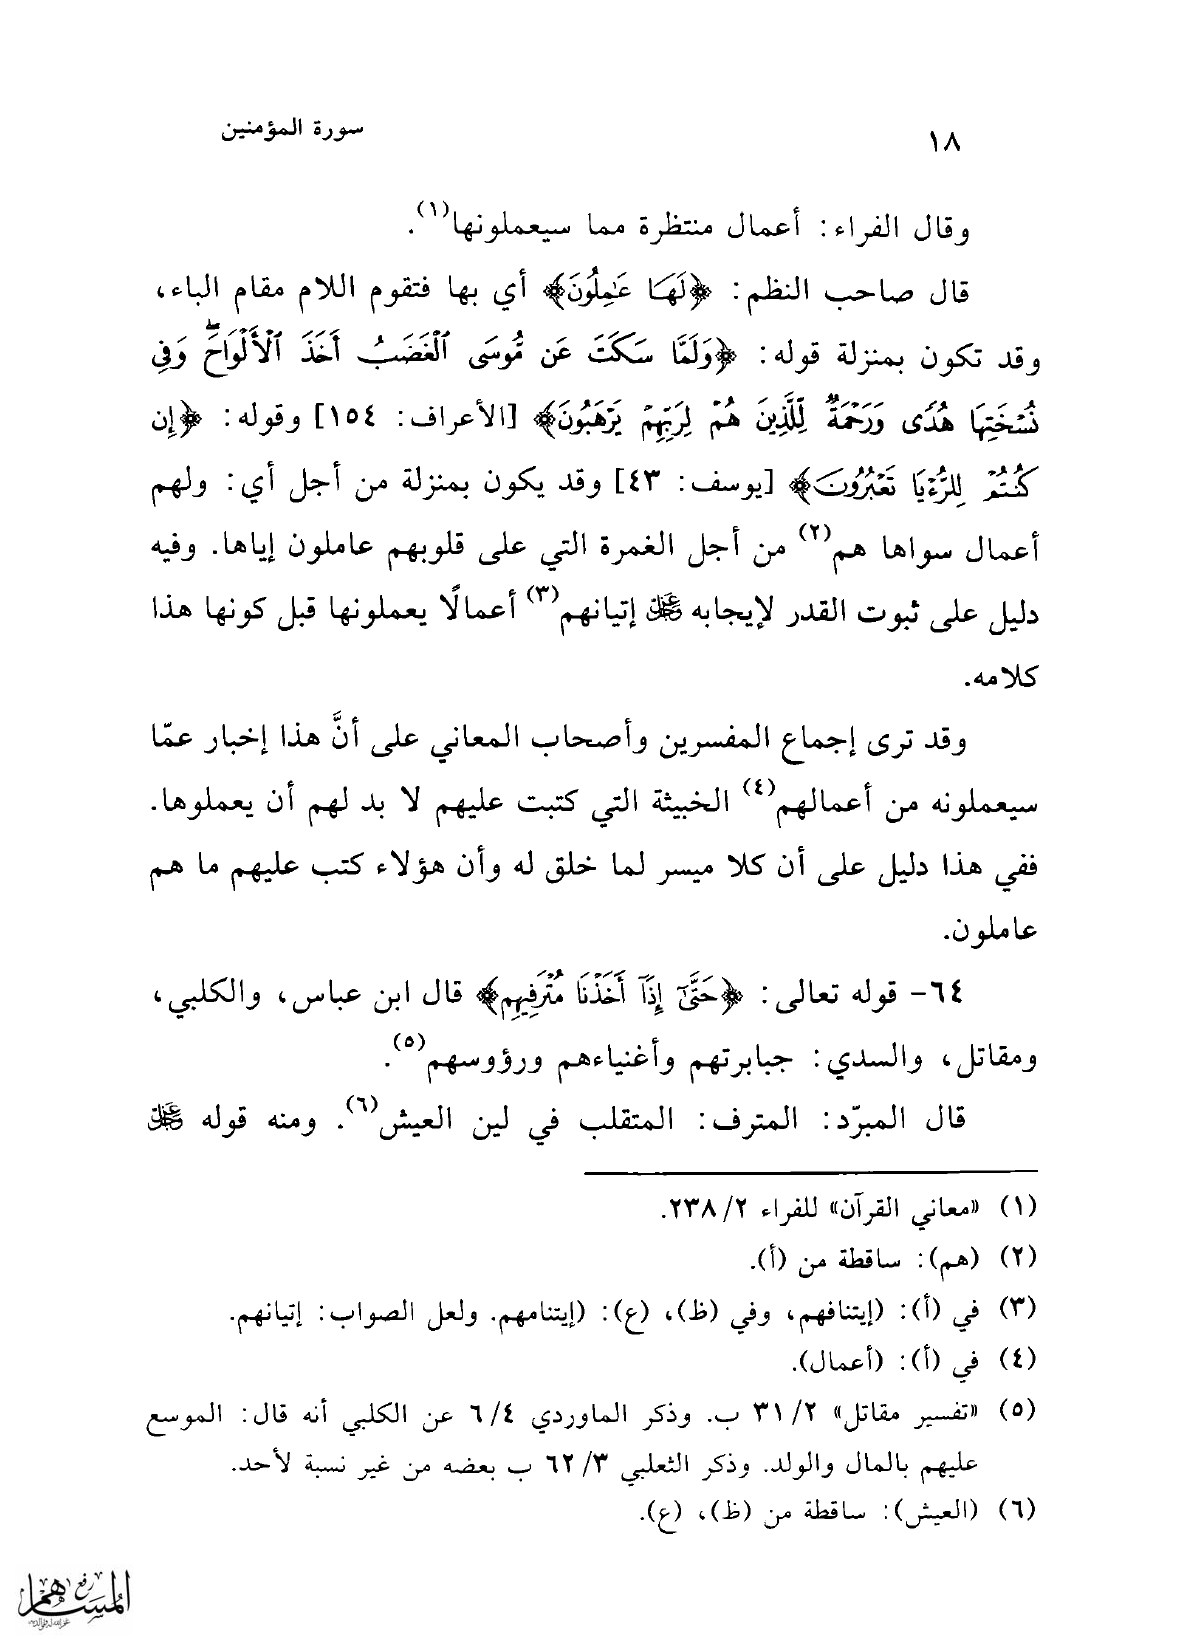 ١٨
سورة المؤمنين
وقال الفراء: أعمال منتظرة مما سيعملونها(١).
قال صاحب النظم: ﴿لَهَا عَٰمِلُونَ﴾ أي بها فتقوم اللام مقام الباء،
وقد تكون بمنزلة قوله: ﴿وَلَمَّا سَكَتَ عَن مُّوسَى ٱلْغَضَبُ أَخَذَ ٱلْأَلْوَاحَ ۖ وَفِى
نُسْخَتِهَا هُدًى وَرَحْمَةٌ لِّلَّذِينَ هُمْ لِرَبِّهِمْ يَرْهَبُونَ﴾ [الأعراف: ١٥٤] وقوله: ﴿إِن
كُنتُمْ لِلرُّءْيَا تَعْبُرُونَ﴾ [يوسف: ٤٣] وقد يكون بمنزلة من أجل أي: ولهم
أعمال سواها هم(٢) من أجل الغمرة التي على قلوبهم عاملون إياها. وفيه
دليل على ثبوت القدر لإيجابه عز وجل إتيانهم(٣) أعمالًا يعملونها قبل كونها هذا
كلامه.
وقد ترى إجماع المفسرين وأصحاب المعاني على أنَّ هذا إخبار عمّا
سيعملونه من أعمالهم(٤) الخبيثة التي كتبت عليهم لا بد لهم أن يعملوها.
ففي هذا دليل على أن كلا ميسر لما خلق له وأن هؤلاء كتب عليهم ما هم
عاملون.
٦٤- قوله تعالى: ﴿حَتَّىٰٓ إِذَآ أَخَذْنَا مُتْرَفِيهِم﴾ قال ابن عباس، والكلبي،
ومقاتل، والسدي: جبابرتهم وأغنياءهم ورؤوسهم(٥).
قال المبرّد: المترف: المتقلب في لين العيش(٦). ومنه قوله عز وجل
(١) «معاني القرآن» للفراء ٢/ ٢٣٨.
(٢) (هم): ساقطة من (أ).
(٣) في (أ): (إيتنافهم، وفي (ظ)، (ع): (إيتنامهم. ولعل الصواب: إتيانهم.
(٤) في (أ): (أعمال).
(٥) «تفسير مقاتل» ٢/ ٣١ ب. وذكر الماوردي ٤/ ٦ عن الكلبي أنه قال: الموسع
عليهم بالمال والولد. وذكر الثعلبي ٣/ ٦٢ ب بعضه من غير نسبة لأحد.
(٦) (العيش): ساقطة من (ظ)، (ع).